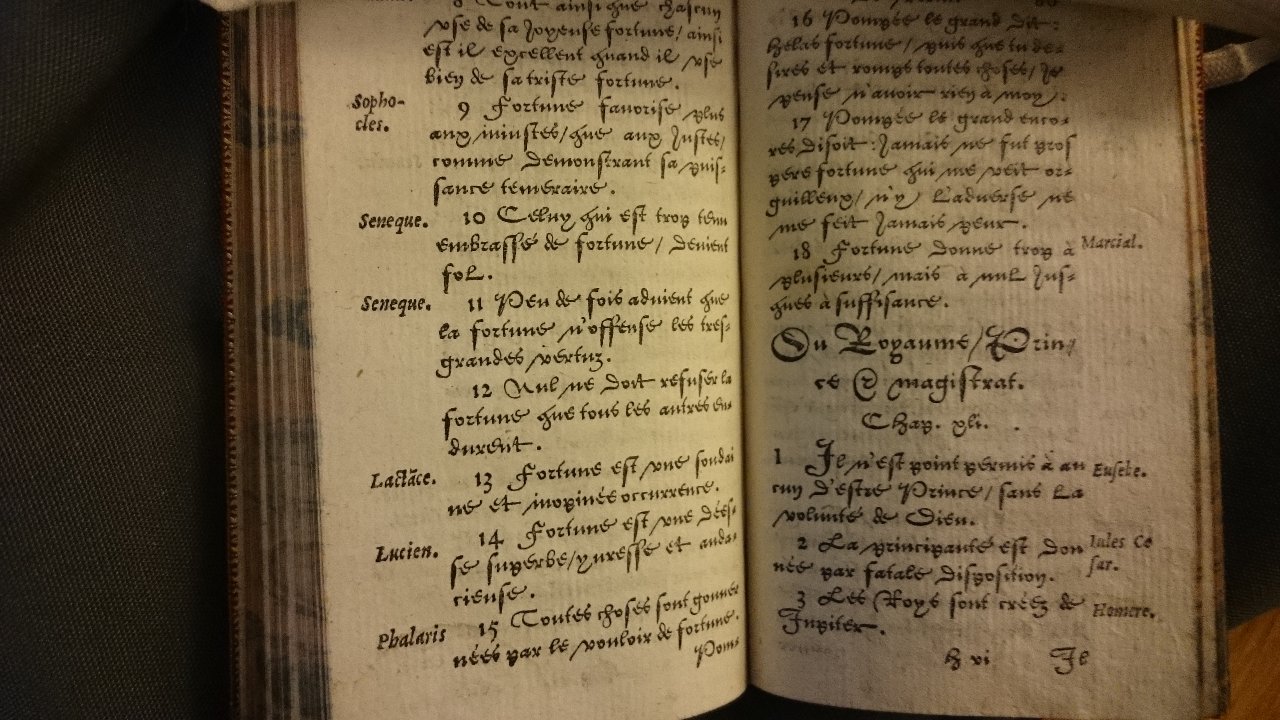 8 Tout ainsi que chascun
vse de sa joyeuse fortune/ ainsi
est il excellent quand il vse
bien de sa triste fortune.
Sopho-
cles.
9 Fortune fauorise plus
aux iniustes/que aux justes/
comme demonstrant sa puis-
sance temeraire.
Seneque.
10 Celuy qui est trop tenu
embrassé de fortune/ deuient
fol.
Seneque.
11 Peu de fois aduient que
la fortune n'offense les tres-
grandes vertuz.
12 Nul ne doit refuser la
fortune que tous les autres en-
durent.
Lactāce.
13 Fortune est vne soudai
ne et inopinée occurrence.
Lucien.
14 Fortune est vne dées-
se superbe/yuresse et auda-
cieuse.
Phalaris
15 Toutes choses sont gouuer
nées par le vouloir de fortune.
Pom-
16 Pompée le grand dit:
Helas fortune/ puis que tu de-
sires et romps toutes choses/ je
pense n'auoir rien à moy.
17 Pompée le grand enco-
res disoit: jamais ne fut pros
pere fortune qui me veit or-
guilleux/ n'y l'aduerse ne
me feit jamais peur.
Marcial.
18 Fortune donne trop à
plusieurs/ mais à nul jus-
ques à suffisance.
Du Royaume/Prin/
ce & magistrat.
Chap. xli.
1 Il n'est point permis à au
cun d'estre Prince/ sans la
volunté de Dieu.
Eusebe.
2 La principauté est don
née par fatale disposition.
Iules Ce
sar.
3 Les Roys sont créez de
Iupiter.
Homere.
h vi Il